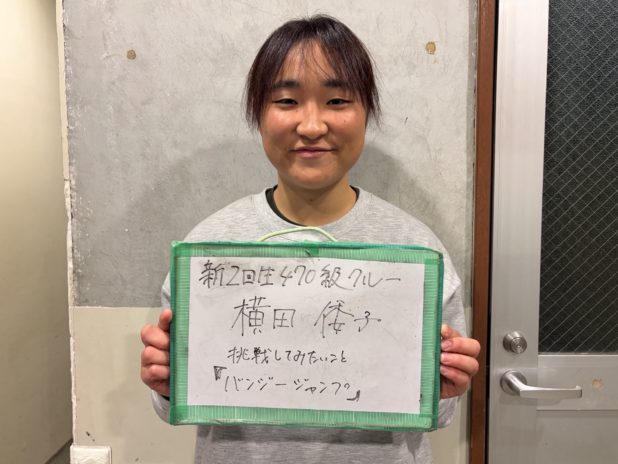 新2回生470級クルー
横田 倭子
挑戦してみたいこと
『バンジージャンプ』